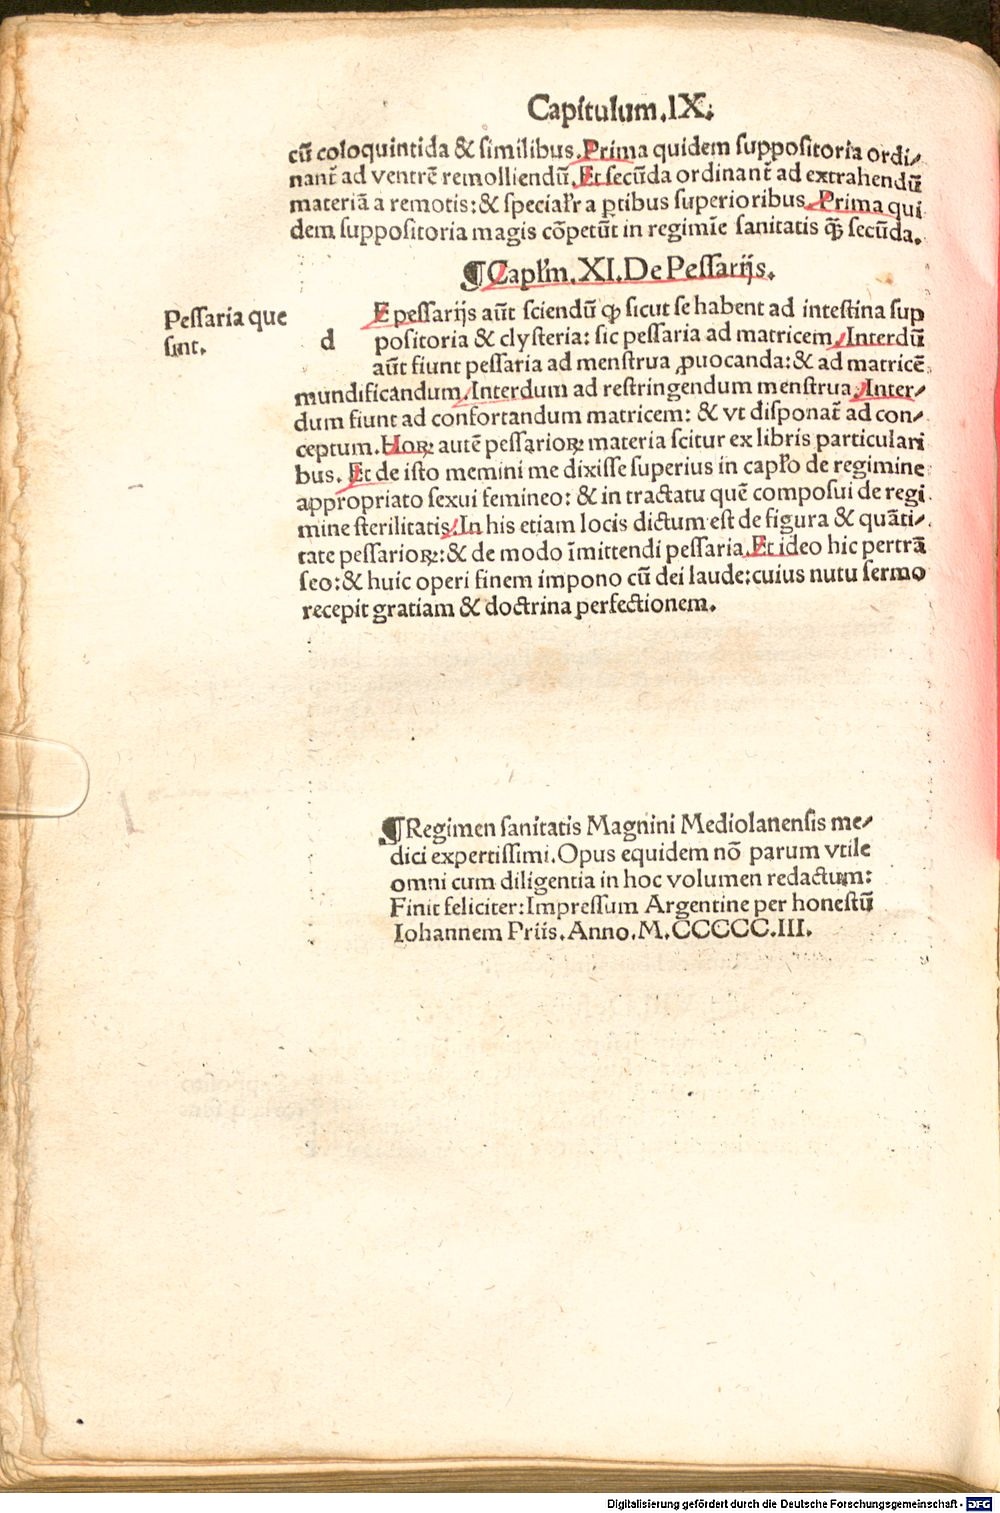 Capitulum.IX.
cū coloquintida & similibus.Prima quidem suppositoria ordi⸗
nant̄ ad ventrē remolliendū.Et secūda ordinant̄ ad extrahendū
materiā a remotis:& specialr̄ a ꝑtibus superioribus.Prima qui
dem suppositoria magis cōpetūt in regimīe sanitatis ꝙ̄ secūda.
¶Capl̄m.XI.De Pessarijs.
Pessaria que
sint.
d E pessarijs aūt sciendū ꝙ sicut se habent ad intestina sup
positoria & clysteria: sic pessaria ad matricem.Interdū
aūt fiunt pessaria ad menstrua ꝓuocanda:& ad matricē
mundificandum.Interdum ad restringendum menstrua.Inter⸗
dum fiunt ad confortandum matricem: & vt disponat̄ ad con⸗
ceptum.Horꝝ autē pessariorꝝ materia scitur ex libris particulari
bus. Et de isto memini me dixisse superius in capl̄o de regimine
appropriato sexui femineo: & in tractatu quē composui de regi
mine sterilitatis.In his etiam locis dictum est de figura & quāti⸗
tate pessariorꝝ:& de modo īmittendi pessaria.Et ideo hic pertrā
seo:& huic operi finem impono cū dei laude:cuius nutu sermo
recepit gratiam & doctrina perfectionem.
¶Regimen sanitatis Magnini Mediolanensis me⸗
dici expertissimi.Opus equidem nō parum vtile
omni cum diligentia in hoc volumen redactum:
Finit feliciter:Impressum Argentine per honestū
Iohannem Priis.Anno.M.CCCCC.III.
Digitalisierung gefördert durch die Deutsche Forschungsgemeinschaft - DFG